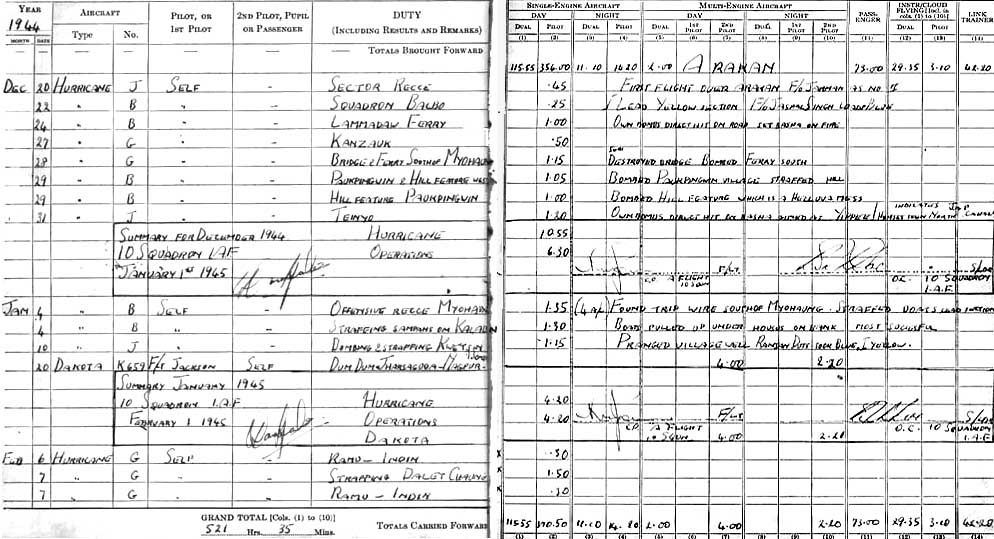 YEAR AIRCRAFT PILOT, OR 1ST PILOT 2ND PILOT, PUPIL OR PASSENGER DUTY (INCLUDING RESULTS AND REMARKS)
1944
MONTH DATE Type No.
— TOTALS BROUGHT FORWARD
DEC 20 HURRICANE J SELF - SECTOR RECCE
22 " B " - SQUADRON BALBO
24 " B " - LAMMADAW FERRY
27 " G " - KANZAUK
28 " G " - BRIDGE & FERRY SOUTH OF MYOHAUNG
29 " B " - PAUKPINGWIN & HILL FEATURE
29 " B " - HILL FEATURE PAUKPINGWIN
31 " J " -
SUMMARY FOR DECEMBER 1944 HURRICANE
10 SQUADRON I.A.F OPERATIONS
JANUARY 1ST 1945
JAN 4 B SELF - OFFENSIVE RECCE
4 B " - STRAFFING SAMPANS ON
10 J " - BOMBING & STRAFFING
20 DAKOTA K659 F/LT JACKSON SELF DUM DUM - JHARSAGUDA - NAGPUR
SUMMARY JANUARY 1945
10 SQUADRON I.A.F HURRICANE
FEBRUARY 1 1945 OPERATIONS
DAKOTA
FEB 6 HURRICANE G SELF - RAMU - INDIN
7 " G " - STRAFFING DALET CHAUNG
7 " G " - RAMU - INDIN
GRAND TOTAL [Cols. (1) to (10)]
521 Hrs. 35 Mins.
TOTALS CARRIED FORWARD
SINGLE-ENGINE AIRCRAFT MULTI-ENGINE AIRCRAFT PASSENGER INSTR/CLOUD FLYING [Incl. in cols. (1) to (10)] LINK TRAINER
DAY NIGHT DAY NIGHT
DUAL PILOT DUAL PILOT DUAL 1ST PILOT 2ND PILOT DUAL 1ST PILOT 2ND PILOT DUAL PILOT
(1) (2) (3) (4) (5) (6) (7) (8) (9) (10) (11) (12) (13) (14)
115.55 356.00 11.10 14.20 2.00 ARAKAN 73.00 29.35 3.10 42.20
.45 FIRST FLIGHT OVER ARAKAN AS NO
.25 I LEAD YELLOW SECTION F/O JASPAL SINGH
1.00 OWN BOMBS DIRECT HIT ON ROAD SET BASHA ON FIRE
.50
1.15 DESTROYED BRIDGE BOMBED FERRY SOUTH
1.05 BOMBED PAUKPINGWIN VILLAGE STRAFFED HILL
1.00 BOMBED HILL FEATURE WHICH IS A HELLUVA MESS
1.20 OWN BOMBS DIRECT HIT ON BASHA AIMED AT
10.55
6.30
F/LT S/LDR
A FLIGHT O.C. 10 SQUADRON
I.A.F.
1.35 FOUND TRIP WIRE SOUTH OF MYOHAUNG - STRAFFED BOATS
1.30 BOATS PULLED UP UNDER HOUSES ON BANK MOST
1.15 PRANGED VILLAGE WELL
4.00 2.20
4.20
4.20 F/LT S/LDR
A FLIGHT O.C. 10 SQUADRON
10 SQDN 4.00 2.20 I.A.F
.30
1.50
.30
115.55 370.50 11.10 2.00 4.00 2.20 73.00 29.35 3.10 42.20
(1) (2) (3) (4) (5) (6) (7) (8) (9) (10) (11) (12) (13) (14)